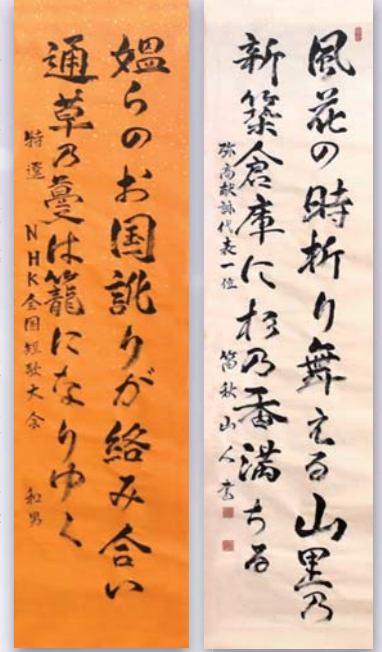 風花の時折り舞える山里乃
新築倉庫に杉乃香満ちる
弥高献詠代表一位 山人書
媼らのお国訛りが絡み合い
通草乃蔓は籠になりゆく
特選 NHK全国短歌大会 和男